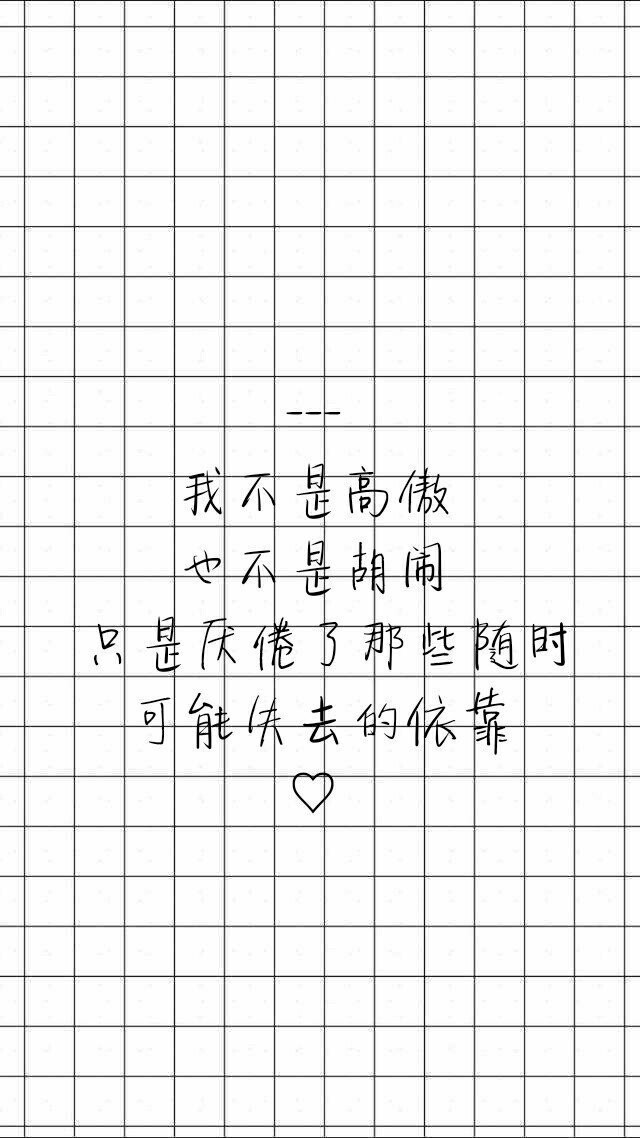 ---
我不是高傲
也不是胡闹
只是厌倦了那些随时
可能失去的依靠
♡